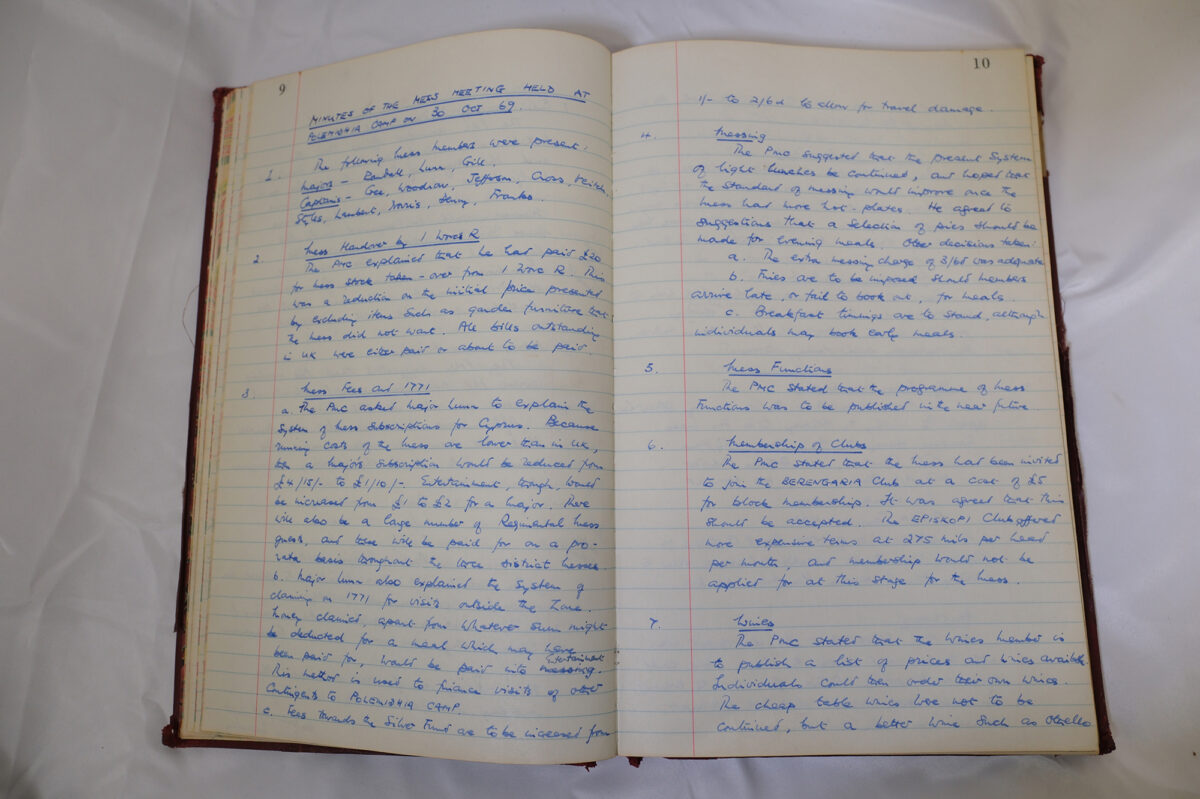 9
MINUTES OF THE MESS MEETING HELD AT
POLEMIDHIA CAMP ON 30 OCT 69.
1. The following mess members were present:
Majors - Randell, Lunn, Gill.
Captains - Gee, Woodrow, Jefferson, Cross,
Styles, Lambert, Norris, Henry, Franks.
2. Mess Handover by 1 Worcs R
The PMC explained that he had paid £20
for mess stock taken-over from 1 Worc R. This
was a reduction on the initial price presented
by excluding items such as garden furniture that
the mess did not want. All bills outstanding
in UK were either paid or about to be paid.
3. Mess Fees and 1771
a. The PMC asked Major Lunn to explain the
System of Mess Subscriptions for Cyprus. Because
running costs of the mess are lower than in UK,
then a Major's Subscription would be reduced from
£4/15/- to £1/10/-. Entertainment, though, would
be increased from £1 to £2 for a Major. There
will also be a large number of Regimental Mess
guests, and these will be paid for on a pro-
rata basis throughout the three district messes.
b. Major Lunn also explained the System of
claiming on 1771 for visits outside the Zone.
Money claimed, apart from whatever sum might
be deducted for a meal which may have
been paid for, would be paid into Entertainment.
This method is used to finance visits of other
Contingents to POLEMIDHIA CAMP.
c. Fees towards the Silver Fund are to be increased from
10
1/- to 2/6d to allow for travel damage.
4. Messing
The PMC suggested that the present System
of light lunches be continued, and hoped that
the standard of messing would improve once the
mess had more hot-plates. He agreed to
suggestions that a selection of pies should be
made for evening meals. Other decisions taken:
a. The extra messing charge of 3/6d was adequate
b. Fines are to be imposed should members
arrive late, or fail to book out, for meals.
c. Breakfast timings are to stand, although
individuals may book early meals.
5. Mess Functions
The PMC stated that the programme of Mess
Functions was to be published in the near future.
6. Membership of Clubs
The PMC stated that the Mess had been invited
to join the BERENGARIA Club at a cost of £5
for block membership. It was agreed that this
should be accepted. The EPISKOPI Club offered
more expensive terms at 275 mils per head
per month, and membership would not be
applied for at this stage for the Mess.
7. Wines
The PMC stated that the Wines member is
to publish a list of prices and wines available
Individuals could then order their own wines.
The cheap table wines were not to be
continued, but a better wine such as Othello